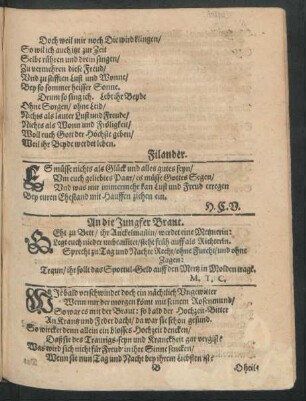 Doch weil mir noch Die wird klingen/
So wil ich auch itzt zur Zeit
Selbe rühren und drein singen/
Zu vermehren diese Freud/
Und zu stifften Lust und Wonne/
Bey so sommer heisser Sonne.
Drum so sing ich. Lebt ihr Beyde
Ohne Sorgen/ ohne Leid/
Nichts als lauter Lust und Freude/
Nichts als Wonn und Füssigkeit/
Woll euch Gott der Höchste geben/
Weil ihr Beyde werdet leben.
Filander.
ES müsse nichts als Glück und alles gutes seyn/
Um euch geliebtes Paar/ es müsse Gottes Segen/
Und was nur immermehr kan Lust und Freud erregen
Bey euren Ehestand mit Hauffen ziehen ein.
H. C. V.
An die Jungfer Braut.
GEht zu Bett/ ihr werdet eine
Legt euch nieder steht früh auff als Richterin.
Sprecht zu Tag und Nachte Recht/ ohne Furcht/ und ohne
Zagen:
Traun/ ihr sollt das Sportul-Geld auff den Mertz in Molden
M. T. C.
WIe bald verschwindet doch ein nächtlich Ungewitter
Wenn nur der morgen köm̃t mit seinem Rosenmund/
So war es mit der Braut: so bald der Hochzeit-Bitter
An Krantz und Feder dacht/ da war sie schon gesund.
So wircket denn allein ein blosses Hochzeit dencken/
Daß sie des Traurigs-seyn und Kranckheit gar vergist?
Was wird sich nicht für Freud in ihre Sinne sencken/
Wenn sie nun Tag und Nacht bey ihrem Liebsten ist?
B
O heil-